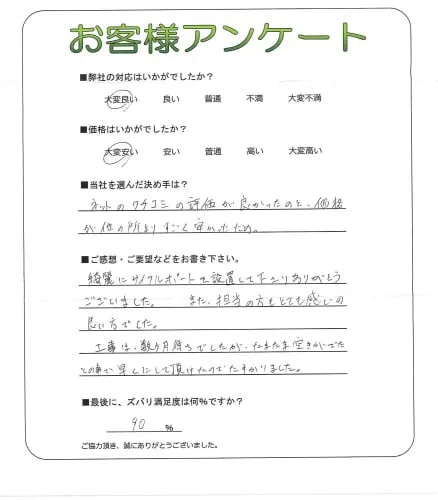 お客様アンケート
■弊社の対応はいかがでしたか？
大変良い 良い 普通 不満 大変不満
■価格はいかがでしたか？
大変安い 安い 普通 高い 大変高い
■当社を選んだ決め手は？
ネットのクチコミの評価が良かったのと、価格
が他の所よりすごく安かったため。
■ご感想・ご要望などをお書き下さい。
綺麗にサイクルポートを設置して下さりありがとう
ございました。 また、担当の方もとても感じの
良い方でした。
工事は、数ヶ月待ちでしたが、たまたま空きがでた
との事で早くにして頂けたので助かりました。
■最後に、ズバリ満足度は何％ですか？
90 ％
ご協力頂き、誠にありがとうございました。